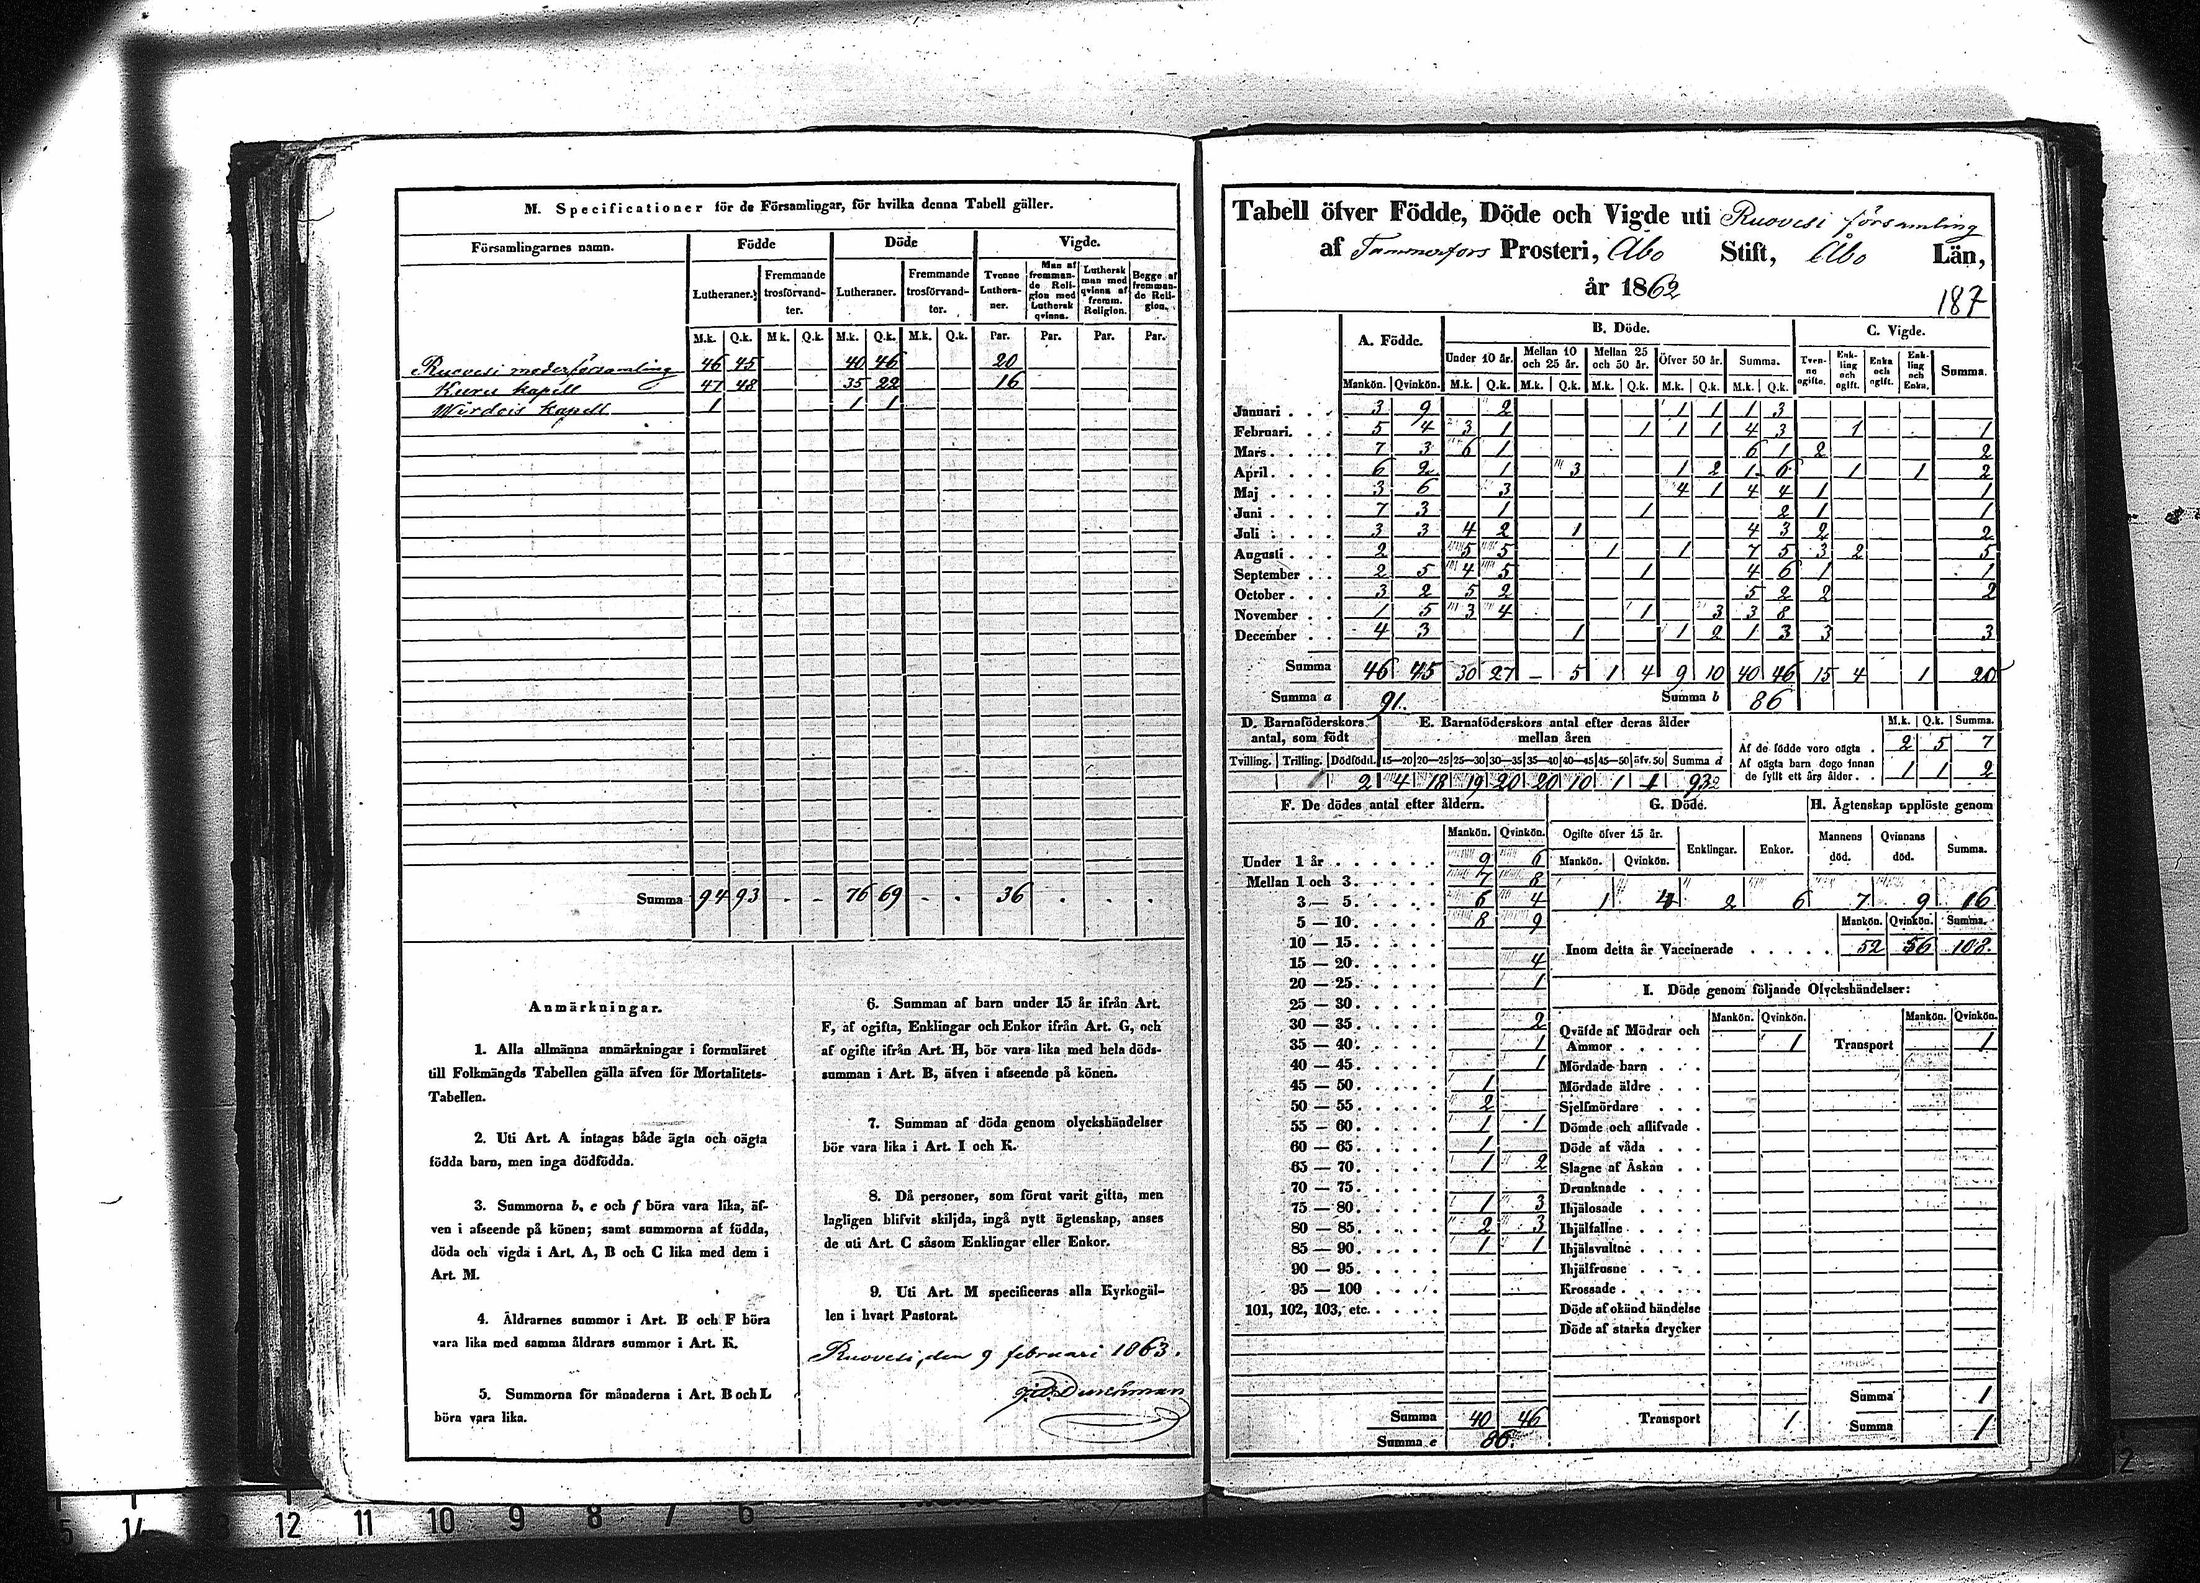 M. Specificationer för de Församlingar, för hvilka denna Tabell gäller.
Församlingarnes namn. Födde Döde Vigde.
Lutheraner. Fremmande trosförvandter. Lutheraner. Fremmande trosförvandter. Tvenne Lutheraner. Man af fremmande Religion med Luthersk qvinna. Luthersk man med qvinna af fremm. Religion. Begge af fremmande Religion.
M.k. Q.k. M.k. Q.k. M.k. Q.k. M.k. Q.k. Par. Par. Par. Par.
Ruovesi moderförsamling 46 45 40 46 20
Kuru kapell 47 48 35 22 16
Wirdois kapell 1 1 1
Summa 94 93 - - 76 69 - - 36 . . .
Anmärkningar.
1. Alla allmänna anmärkningar i formuläret
till Folkmängds Tabellen gälla äfven för Mortalitets-
Tabellen.
2. Uti Art. A intagas både ägta och oägta
födda barn, men inga dödfödda.
3. Summorna b, e och f böra vara lika, äf-
ven i afseende på könen; samt summorna af födda,
döda och vigda i Art. A, B och C lika med dem i
Art. M.
4. Åldrarnes summor i Art. B och F böra
vara lika med samma åldrars summor i Art. K.
5. Summorna för månaderna i Art. B och L
böra vara lika.
6. Summan af barn under 15 år ifrån Art.
F, af ogifta, Enklingar och Enkor ifrån Art. G, och
af ogifte ifrån Art. H, bör vara lika med hela döds-
summan i Art. B, äfven i afseende på könen.
7. Summan af döda genom olyckshändelser
bör vara lika i Art. I och K.
8. Då personer, som förut varit gifta, men
lagligen blifvit skiljda, ingå nytt ägtenskap, anses
de uti Art. C såsom Enklingar eller Enkor.
9. Uti Art. M specificeras alla Kyrkogäl-
len i hvart Pastorat.
Ruovesi, den 9 februari 1863.
Tabell öfver Födde, Döde och Vigde uti Ruovesi församling
af Tammerfors Prosteri, Åbo Stift, Åbo Län,
år 1862
187
A. Födde. B. Döde. C. Vigde.
Under 10 år. Mellan 10 och 25 år. Mellan 25 och 50 år. Öfver 50 år. Summa. Tvenne ogifte. Enkling och ogift. Enka och ogift. Enkling och Enka. Summa.
Mankön. Qvinkön. M.k. Q.k. M.k. Q.k. M.k. Q.k. M.k. Q.k. M.k. Q.k.
Januari 3 9 2 1 1 1 3
Februari. 5 4 3 1 1 1 1 4 3 1 1
Mars 7 3 6 1 6 1 2 2
April 6 2 1 3 1 2 1 6 1 1 2
Maj 3 6 3 4 1 4 4 1 1
Juni 7 3 1 1 2 1 1
Juli 3 3 4 2 1 4 3 2 2
Augusti 2 5 5 1 1 7 5 3 2 5
September 2 5 4 5 1 4 6 1 1
October 3 2 5 2 5 2 2 2
November 1 5 3 4 1 3 3 8
December 4 3 1 1 2 1 3 3 3
Summa 46 45 30 27 - 5 1 4 9 10 40 46 15 4 1 20
Summa a 91. Summa b 86
D. Barnaföderskors antal, som födt
Tvilling. Trilling. Dödfödd.
2
E. Barnaföderskors antal efter deras ålder mellan åren
15—20 20—25 25—30 30—35 35—40 40—45 45—50 öfv. 50 Summa d
4 18 19 20 20 10 1
M.k. Q.k. Summa.
Af de födde voro oägta . 2 5 7
Af oägta barn dogo innan
de fyllt ett års ålder . . 1 1 2
F. De dödes antal efter åldern.
Mankön. Qvinkön.
Under 1 år 9 6
Mellan 1 och 3. 7 8
3 — 5. 6 4
5 — 10. 8 9
10 — 15.
15 — 20. 4
20 — 25. 1
25 — 30.
30 — 35. 2
35 — 40. 1
40 — 45. 1
45 — 50. 1
50 — 55. 2
55 — 60. 1 1
60 — 65. 1
65 — 70. 1 2
70 — 75.
75 — 80. 1 3
80 — 85. 2 3
85 — 90. 1 1
90 — 95.
95 — 100
101, 102, 103, etc.
Summa 40 46
Summa e 86.
G. Döde.
Ogifte öfver 15 år. Enklingar. Enkor.
Mankön. Qvinkön.
1 4 2 6
H. Ägtenskap upplöste genom
Mannens död. Qvinnans död. Summa.
7 9 16
Mankön. Qvinkön. Summa.
Inom detta år Vaccinerade 52 56 108.
I. Döde genom följande Olyckshändelser:
Mankön. Qvinkön. Mankön. Qvinkön.
Qväfde af Mödrar och
Ammor 1 Transport 1
Mördade barn
Mördade äldre
Sjelfmördare
Dömde och aflifvade
Döde af våda
Slagne af Åskan
Drunknade
Ihjälosade
Ihjälfallne
Ihjälsvultne
Ihjälfrusne
Krossade
Döde af okänd händelse
Döde af starka drycker
Summa 1
Transport 1 Summa 1
12 11 10 9 8 7 6